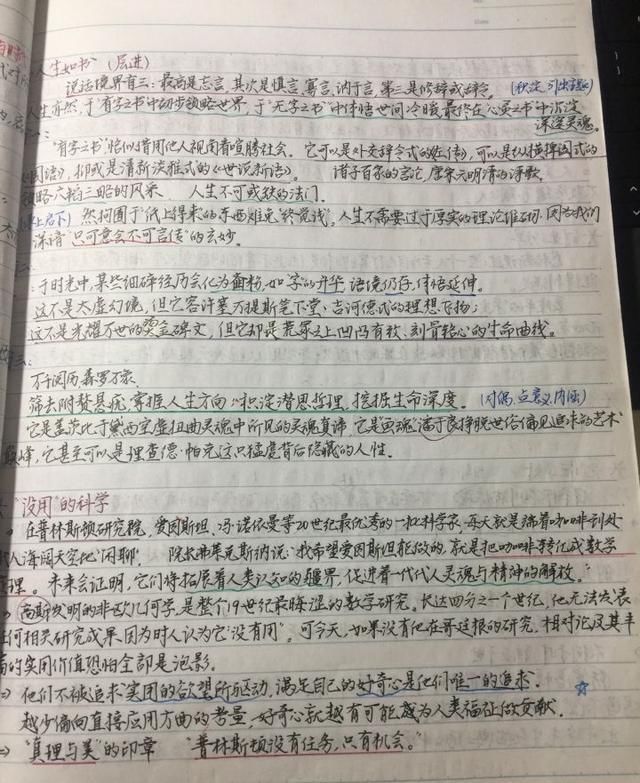 人生如书" (层进)
说话境界有三:最高是忘言,其次是慎言、寡言、讷于言,第三是修辞或辞令。
人生亦然,于"有字之书"中初步领略世界,于"无字之书"中体悟世间冷暖,最终在"心灵之书"中沉淀
深邃灵魂。
"有字之书"恰似借用他人视角看喧腾社会。它可以是外交辞令式的《左传》,可以是纵横捭阖式的
《国语》,抑或是清新淡雅式的《世说新语》。 诸子百家的言论,唐宋元明清的诗歌
领略六韬三略的风采 人生不可或缺的法门.
(承上启下) 然拘囿于"纸上得来"的东西难免"终觉浅",人生不需要过于厚实的理论堆砌,因为我们
深谙"只可意会不可言传"的玄妙.
于时光中,某些细碎经历会化为面粉,如"字"的升华,语境仍存,体悟延伸。
这不是太虚幻境,但它容许塞万提斯笔下堂·吉诃德式的理想飞扬;
这不是光耀万世的奖金碑文,但它却是荒冢之上凹凸有致、刻骨铭心的生命曲线。
万千阅历森罗万象
筛去附赘悬疣,掌握人生方向,积淀潜思哲理,挖掘生命深度。 (对偶,点意义,内涵)
它是盖茨比于黛西空虚扭曲灵魂中所见的灵魂真谛,它是画魂潘于良挣脱世俗偏见追求的艺术
巅峰,它甚至可以是理查德·帕克这只猛虎背后隐藏的人性.
"没用"的科学
在普林斯顿研究院,爱因斯坦、冯·诺依曼等20世纪最优秀的一批科学家,每天就是端着咖啡到处
找人海阔天空地"闲聊". 院长弗莱克斯纳说:"我希望爱因斯坦能做的,就是把咖啡转化成数学
定理。未来会证明,它们将拓展着人类认知的疆界,促进着一代代人灵魂与精神的解放。"
高斯发明的非欧几何学,是整个19世纪最晦涩的数学研究。长达四分之一个世纪,他无法发表
任何相关研究成果,因为时人认为它"没有用"。可今天,如果没有他在哥廷根的研究,相对论及其丰
富的实用价值恐怕全部是泡影.
→ 他们不被追求实用的欲望所驱动,满足自己的好奇心是他们唯一的追求.
越少偏向直接应用方面的考量,好奇心就越有可能成为人类福祉做贡献.
→ "真理与美"的印章 "普林斯顿没有任务,只有机会。"